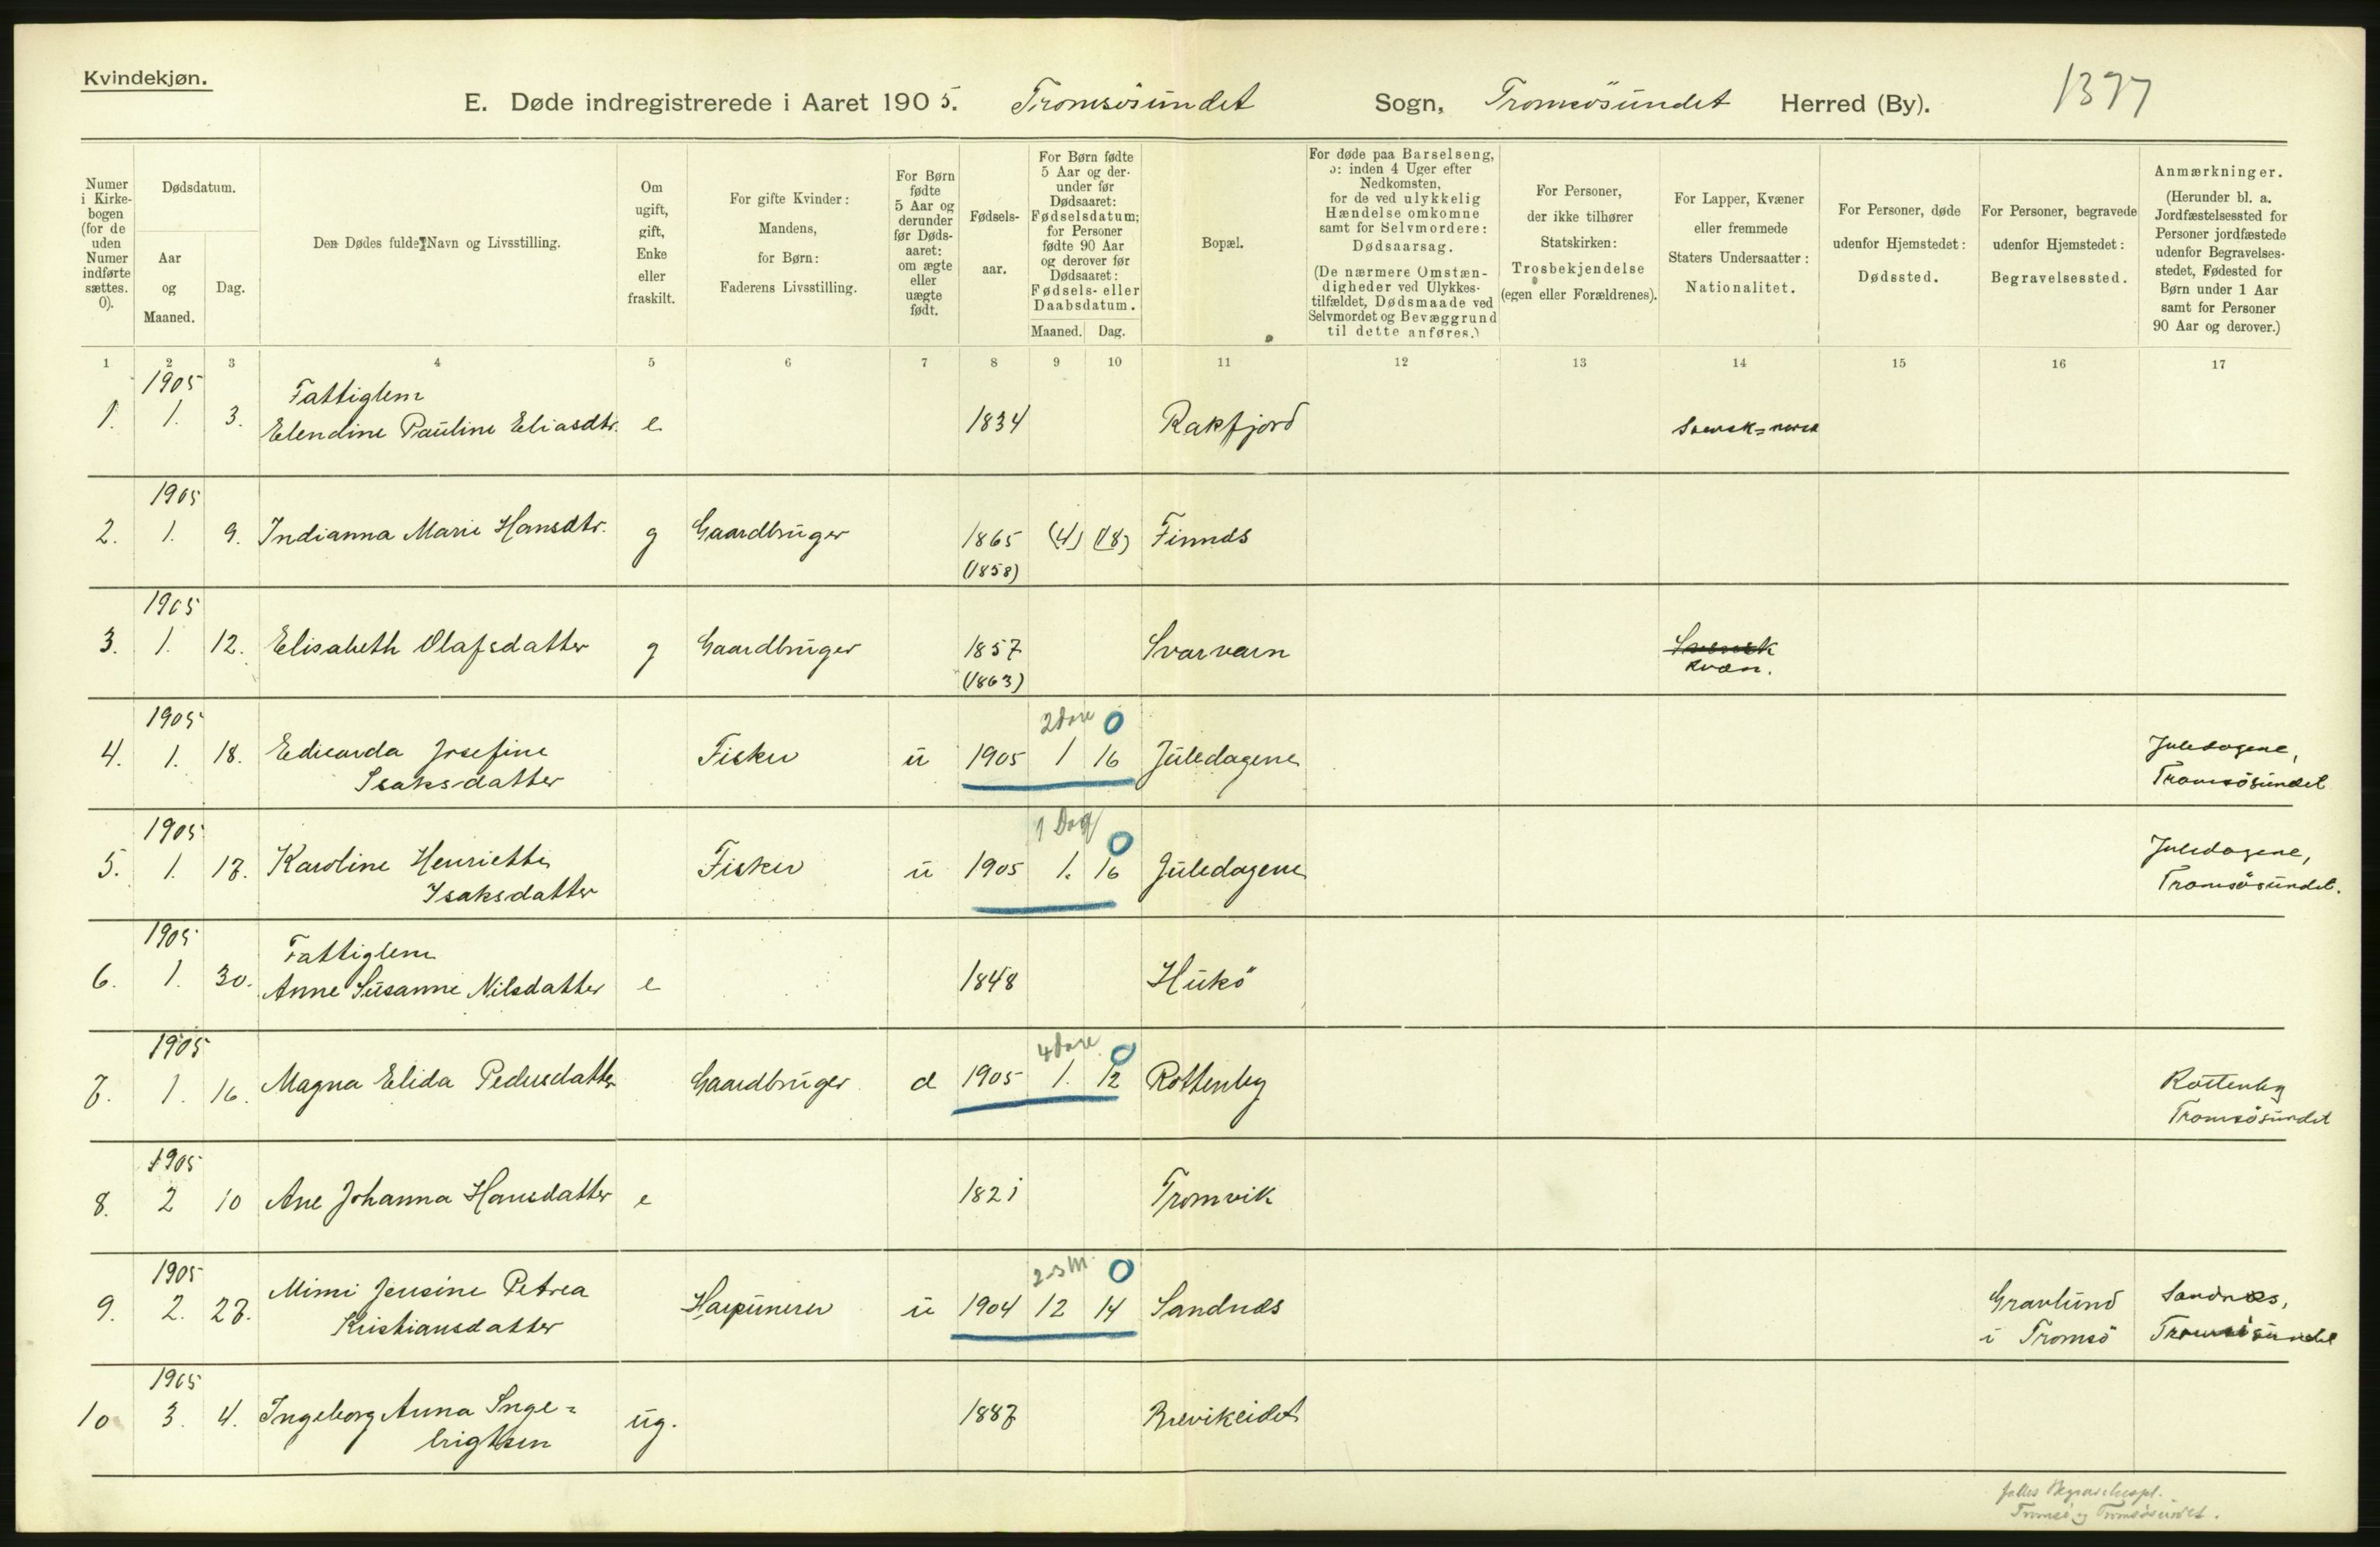 Kvindekjøn.
E. Døde indregistrerede i Aaret 1905. Tromsösundet Sogn, Tromsösundet Herred (By). 1397
Numer i Kirkebogen (for de uden Numer indførte sættes. 0).
Dødsdatum.
Aar og Maaned.
Dag.
Den Dødes fulde Navn og Livsstilling.
Om ugift, gift, Enke eller fraskilt.
For gifte Kvinder: Mandens, for Børn: Faderens Livsstilling.
For Børn fødte 5 Aar og derunder før Dødsaaret: om ægte eller uægte født.
Fødselsaar.
For Børn fødte 5 Aar og derunder før Dødsaaret: Fødselsdatum; for Personer fødte 90 Aar og derover før Dødsaaret: Fødsels- eller Daabsdatum.
Maaned. Dag.
Bopæl.
For døde paa Barselseng, ɔ: inden 4 Uger efter Nedkomsten, for de ved ulykkelig Hændelse omkomne samt for Selvmordere: Dødsaarsag.
(De nærmere Omstændigheder ved Ulykkestilfældet, Dødsmaade ved Selvmordet og Bevæggrund til dette anføres.)
For Personer, der ikke tilhører Statskirken: Trosbekjendelse (egen eller Forældrenes).
For Lapper, Kvæner eller fremmede Staters Undersaatter: Nationalitet.
For Personer, døde udenfor Hjemstedet: Dødssted.
For Personer, begravede udenfor Hjemstedet: Begravelsessted.
Anmærkninger.
(Herunder bl. a. Jordfæstelsessted for Personer jordfæstede udenfor Begravelsesstedet, Fødested for Børn under 1 Aar samt for Personer 90 Aar og derover.)
1 2 3 4 5 6 7 8 9 10 11 12 13 14 15 16 17
1905 Fattiglem
1. 1. 3. Elendine Pauline Eliasdtr. e 1834 Rakfjord Svensk=norsk
1905
2. 1. 9. Indianna Marie Hansdtr. g Gaardbruger 1865 (4) (18) Finnæs
(1858)
1905
3. 1. 12. Elisabeth Olafsdatter g Gaardbruger 1857 Svarvarn Svensk
(1863) kvæn.
1905 2 Dage 0
4. 1. 18. Edvarda Josefine Fisker u 1905 1 16 Juledagene Juledagene,
Isaksdatter Tromsösundet
1905 1 Dag 0
5. 1. 17. Karoline Henriette Fisker u 1905 1. 16 Juledagene Juledagene,
Isaksdatter Tromsösundet.
1905 Fattiglem
6. 1. 30. Anne Susanne Nilsdatter e 1848 Hukö
1905 4 Dage 0
7. 1. 16. Magna Elida Pedersdatter Gaardbruger d 1905 1. 12 Rottenby Rottenby
Tromsösundet
1905
8. 2 10 Ane Johanna Hansdatter e 1821 Tromvik
1905 2-3 M. 0
9. 2. 27. Mimi Jensine Petrea Harpunerer u 1904 12 14 Sandnæs Gravlund Sandnæs,
Kristiansdatter i Tromsö Tromsösundet
1905
10 3. 4. Ingeborg Anna Inge= ug. 1887 Brevikeidet
brigtsen
fælles Begravelsespl.
Tromsö og Tromsösundet.